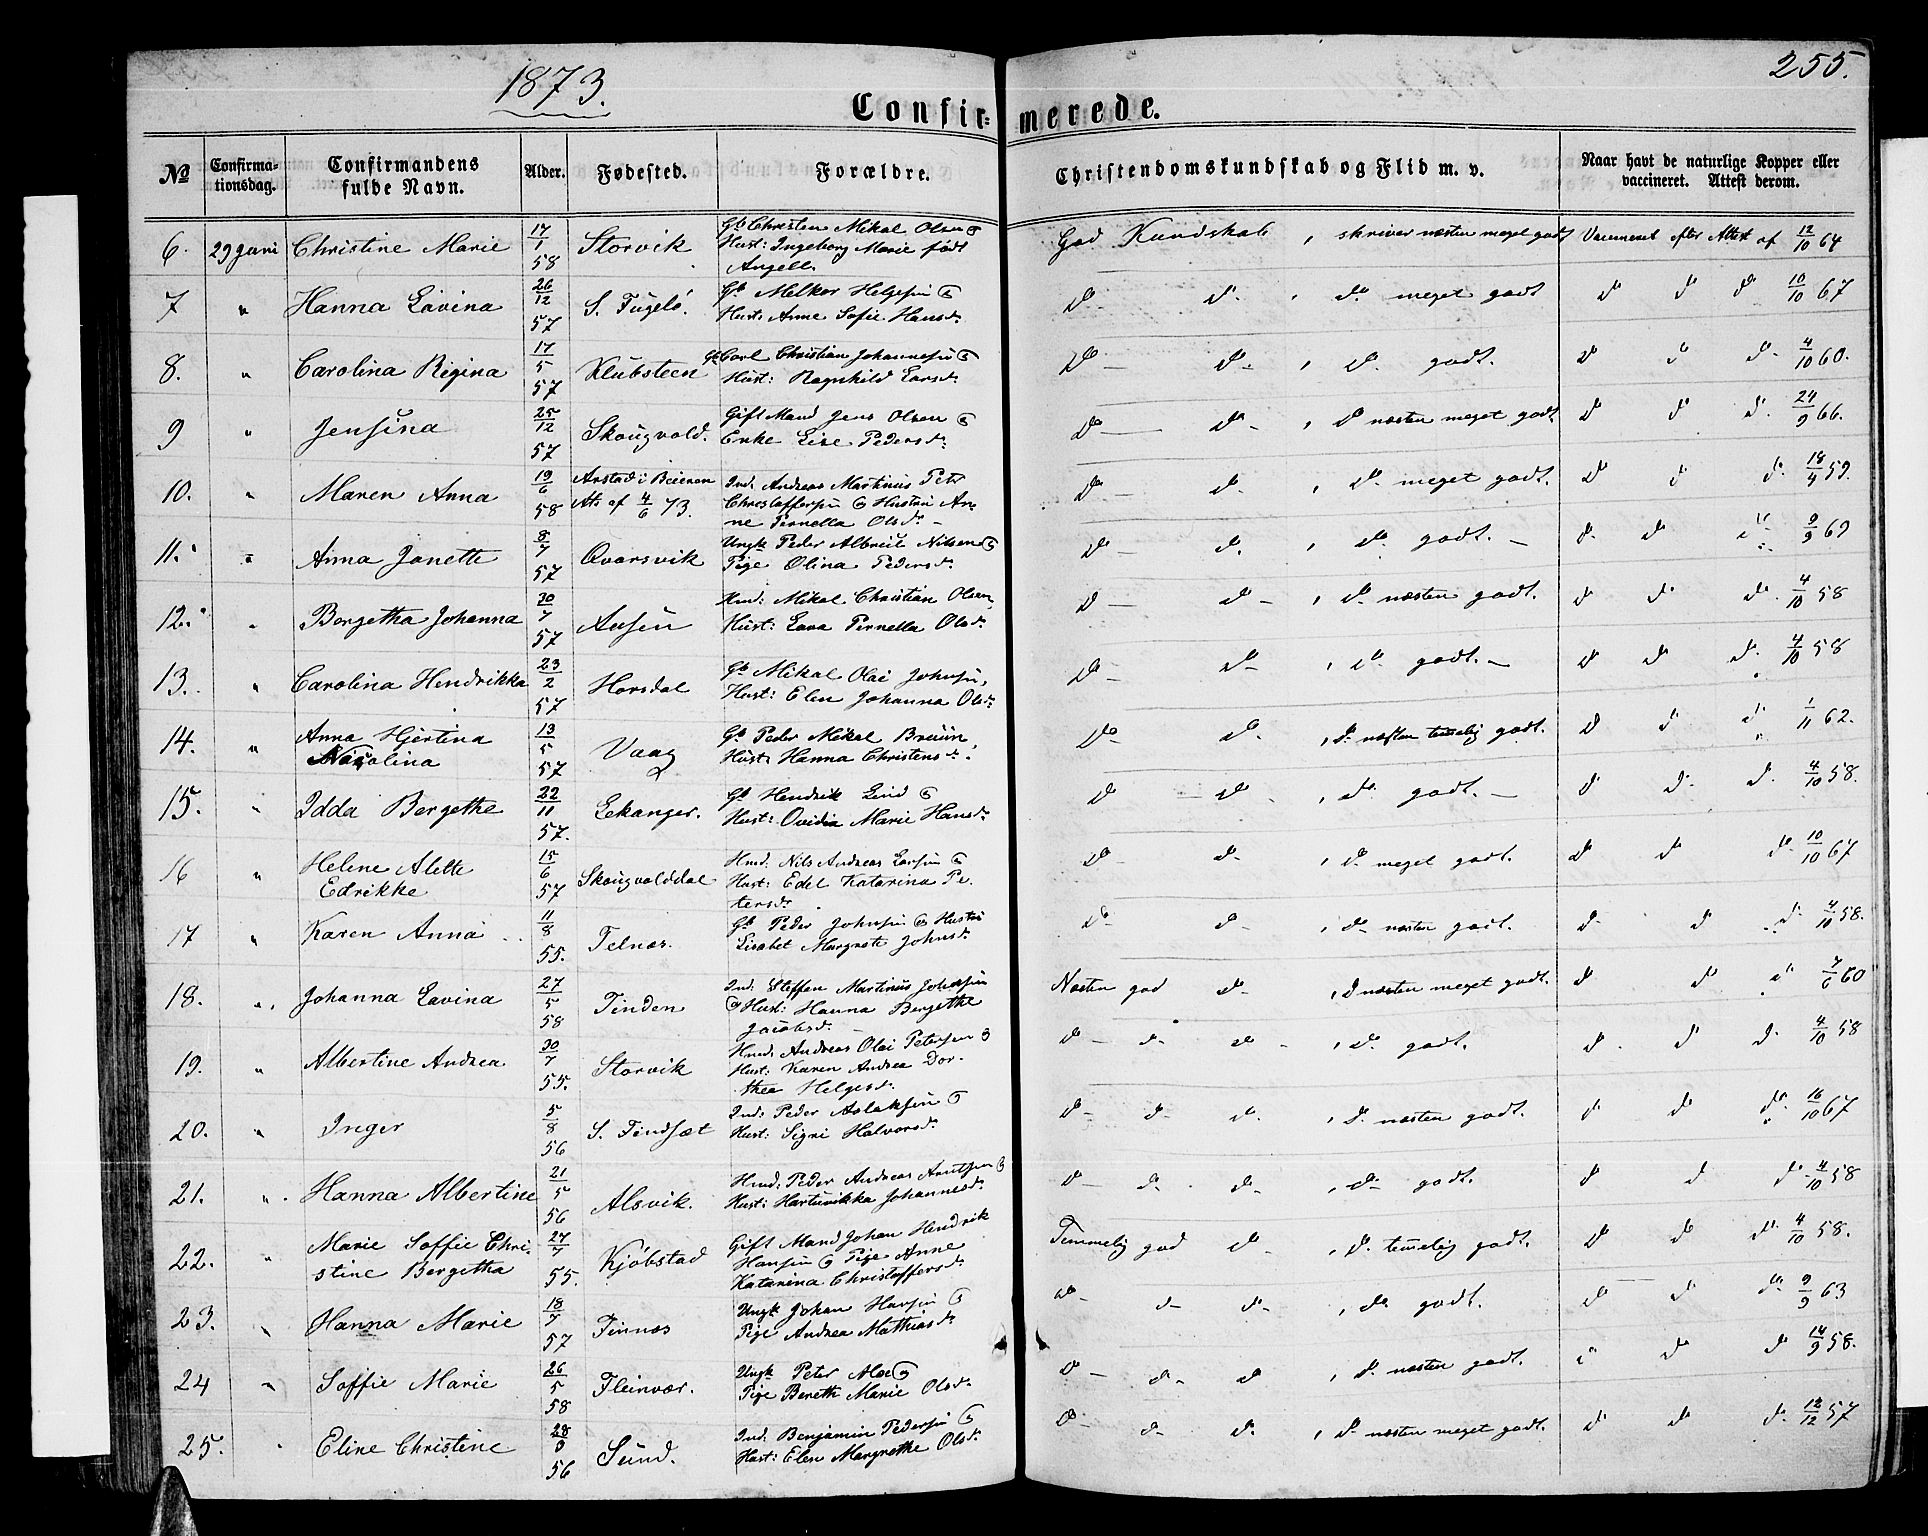 1873.
255.
Confir- merede.
№
Confirma-
tionsdag.
Confirmandens
fulde Navn.
Alder.
Fødested.
Forældre.
Christendomskundskab og Flid m. v.
Naar havt de naturlige Kopper eller
vaccineret. Attest derom.
6. 29 Juni Christine Marie 17/1 58 Storvik
Christen Mikal Olsen
Hust: Ingeborg Marie født
Angell.
God Kundskab, skriver næsten meget godt Vaccineret efter Attest af 12/10 64
7 " Hanna Lavina 26/12 57 S. Fugelö.
Melker Helgesen
Hust: Anne Sofie Hansd.
Do Do, Do meget godt Do Do Do 10/10 67
8. " Carolina Regina 17/5 57 Klubsteen
Carl Christian Johannesen
Hust: Ragnhild Larsd.
Do Do, Do godt. Do Do Do 4/10 60.
9 " Jensina 25/12 57 Skougvold.
Gift Mand Jens Olsen
Enke Lise Pedersd.
Do Do, Do næsten meget godt. Do Do Do 24/9 66.
10. " Maren Anna 19/6 58 Arstad i Beieren
Att. af 4/6 73.
Ind. Andreas Martinus Petr
Christoffersen Hustru An-
ne Pernella Olsd.
Do Do, Do meget godt. Do Do Do 18/9 59.
11. " Anna Janette 8/7 57 Qvarsvik
Ungk. Peder Albreit Nilsen
Pige Olina Pedersd.
Do Do, Do godt. Do Do Do 9/9 69
12. " Bergetha Johanna 30/7 57 Ausen
Hmd: Mikal Christian Olsen
Hust: Lava Pernella Olsd.
Do Do, Do næsten godt. Do Do Do 4/10 58
13. " Carolina Hendrikka 23/2 57 Horsdal
Mikal Olai Johnsen,
Hust: Elen Johanna Olsd.
Do Do, Do godt. Do Do Do 4/10 58
14. " Anna Hjertina
Nicolina 13/5 57 Vaag
Peder Mikal Bruun,
Hust: Hanna Christensd.
Do Do, Do næsten temelig godt. Do Do Do 1/11 62.
15. " Idda Bergethe 22/11 57. Lekanger.
Hendrik Lind
Hust: Ovidia Marie Hansd.
Do Do, Do godt. Do Do Do 4/10 58.
16 " Helene Alette
Edrikke 15/6 57 Skougvolddal
Hmd: Nils Andreas Larsen
Hust: Edel Katarina Pe-
tersd.
Do Do, Do meget godt. Do Do Do 10/10 67
17 " Karen Anna 11/8 55. Felnæs.
Peder Johnsen Hustru
Lisabet Margrete Johnsd.
Do Do, Do næsten godt. Do Do Do 4/10 58.
18. " Johanna Lavina 27/5 58 Tinden
Ind. Steffen Martinus Johnsen
Hust: Hanna Bergethe
Jacobsd.
Næsten god Do, Do næsten meget godt. Do Do Do 7/6 60
19. " Albertine Andrea 30/7 55. Storvik
Hmd: Andreas Olai Petersen
Hust: Karen Andrea Dor-
thea Helgesd.
Do Do Do, Do godt. Do Do Do 4/10 58
20. " Inger 5/8 56 S. Findsæt
Ind: Peder Aslaksen
Hust: Signi Halvorsd.
Do Do Do, Do næsten godt. Do Do Do 16/10 67
21. " Hanna Albertine 21/5 56 Alsvik.
Hmd: Peder Andreas Arntsen
Hust: Hartuvikka Johannesd.
Do Do Do, Do godt. Do Do Do 4/10 58
22. " Marie Soffie Chri-
stine Bergetha 27/7 55. Kjöbstad
Gift Mand Johan Hendrik
Hansen Pige Anne
Katarina Christoffersd.
Temmelig god Do, Do temelig godt. Do Do Do 4/10 58.
23. " Hanna Marie 18/7 57 Finnæs
Ungk. Johan Hansen
Pige Andrea Mathiasd.
Do Do Do, Do godt. Do Do Do 9/9 63
24 " Soffie Marie 26/5 58 Fleinvær.
Ungk. Peter Moe
Pige Bereth Marie Olsd.
Do Do Do, Do næsten godt. Do Do Do 14/9 58.
25. " Eline Christine 28/9 56 Sund.
Ind. Benjamin Pedersen
Hust: Elen Margrethe Olsd.
Do Do Do, Do næsten meget godt. Do Do Do 12/12 57